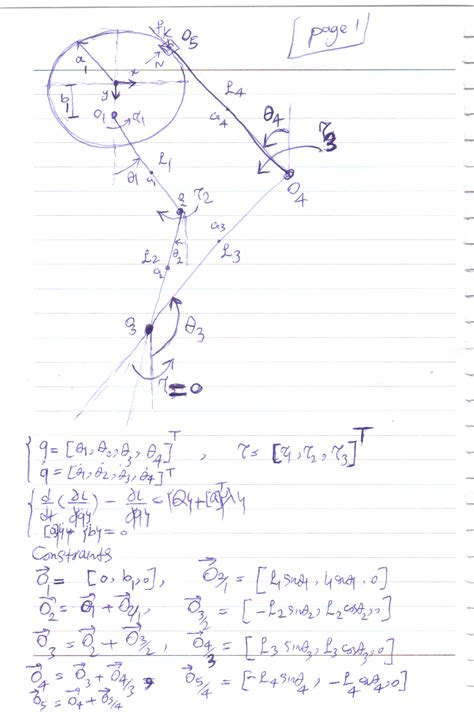 [page 1]
O5
K
N
a1
x
y
b1
O1
τ1
L4
a4
θ4
τ3
O4
L1
θ1
a1
2
τ2
a3
L3
L2
θ2
a2
O3
θ3
τ=0
q=[θ1,θ2,θ3,θ4]^T , τ=[τ1,τ2,τ3]^T
q̇=[θ̇1,θ̇2,θ̇3,θ̇4]^T
d/dt(∂L/∂q̇) - ∂L/∂q = {Q}+[a]^Tλ
Constraints
O⃗1 = [0, b1, 0], O⃗2/1 = [L1sinθ1, L1cosθ1, 0]
O⃗2 = O⃗1 + O⃗2/1, O⃗3/2 = [-L2sinθ2, L2cosθ2, 0]
O⃗3 = O⃗2 + O⃗3/2, O⃗4/3 = [L3sinθ3, L3cosθ3, 0]
O⃗4 = O⃗3 + O⃗4/3, O⃗5/4 = [-L4sinθ4, -L4cosθ4, 0]
O⃗5 = O⃗4 + O⃗5/4